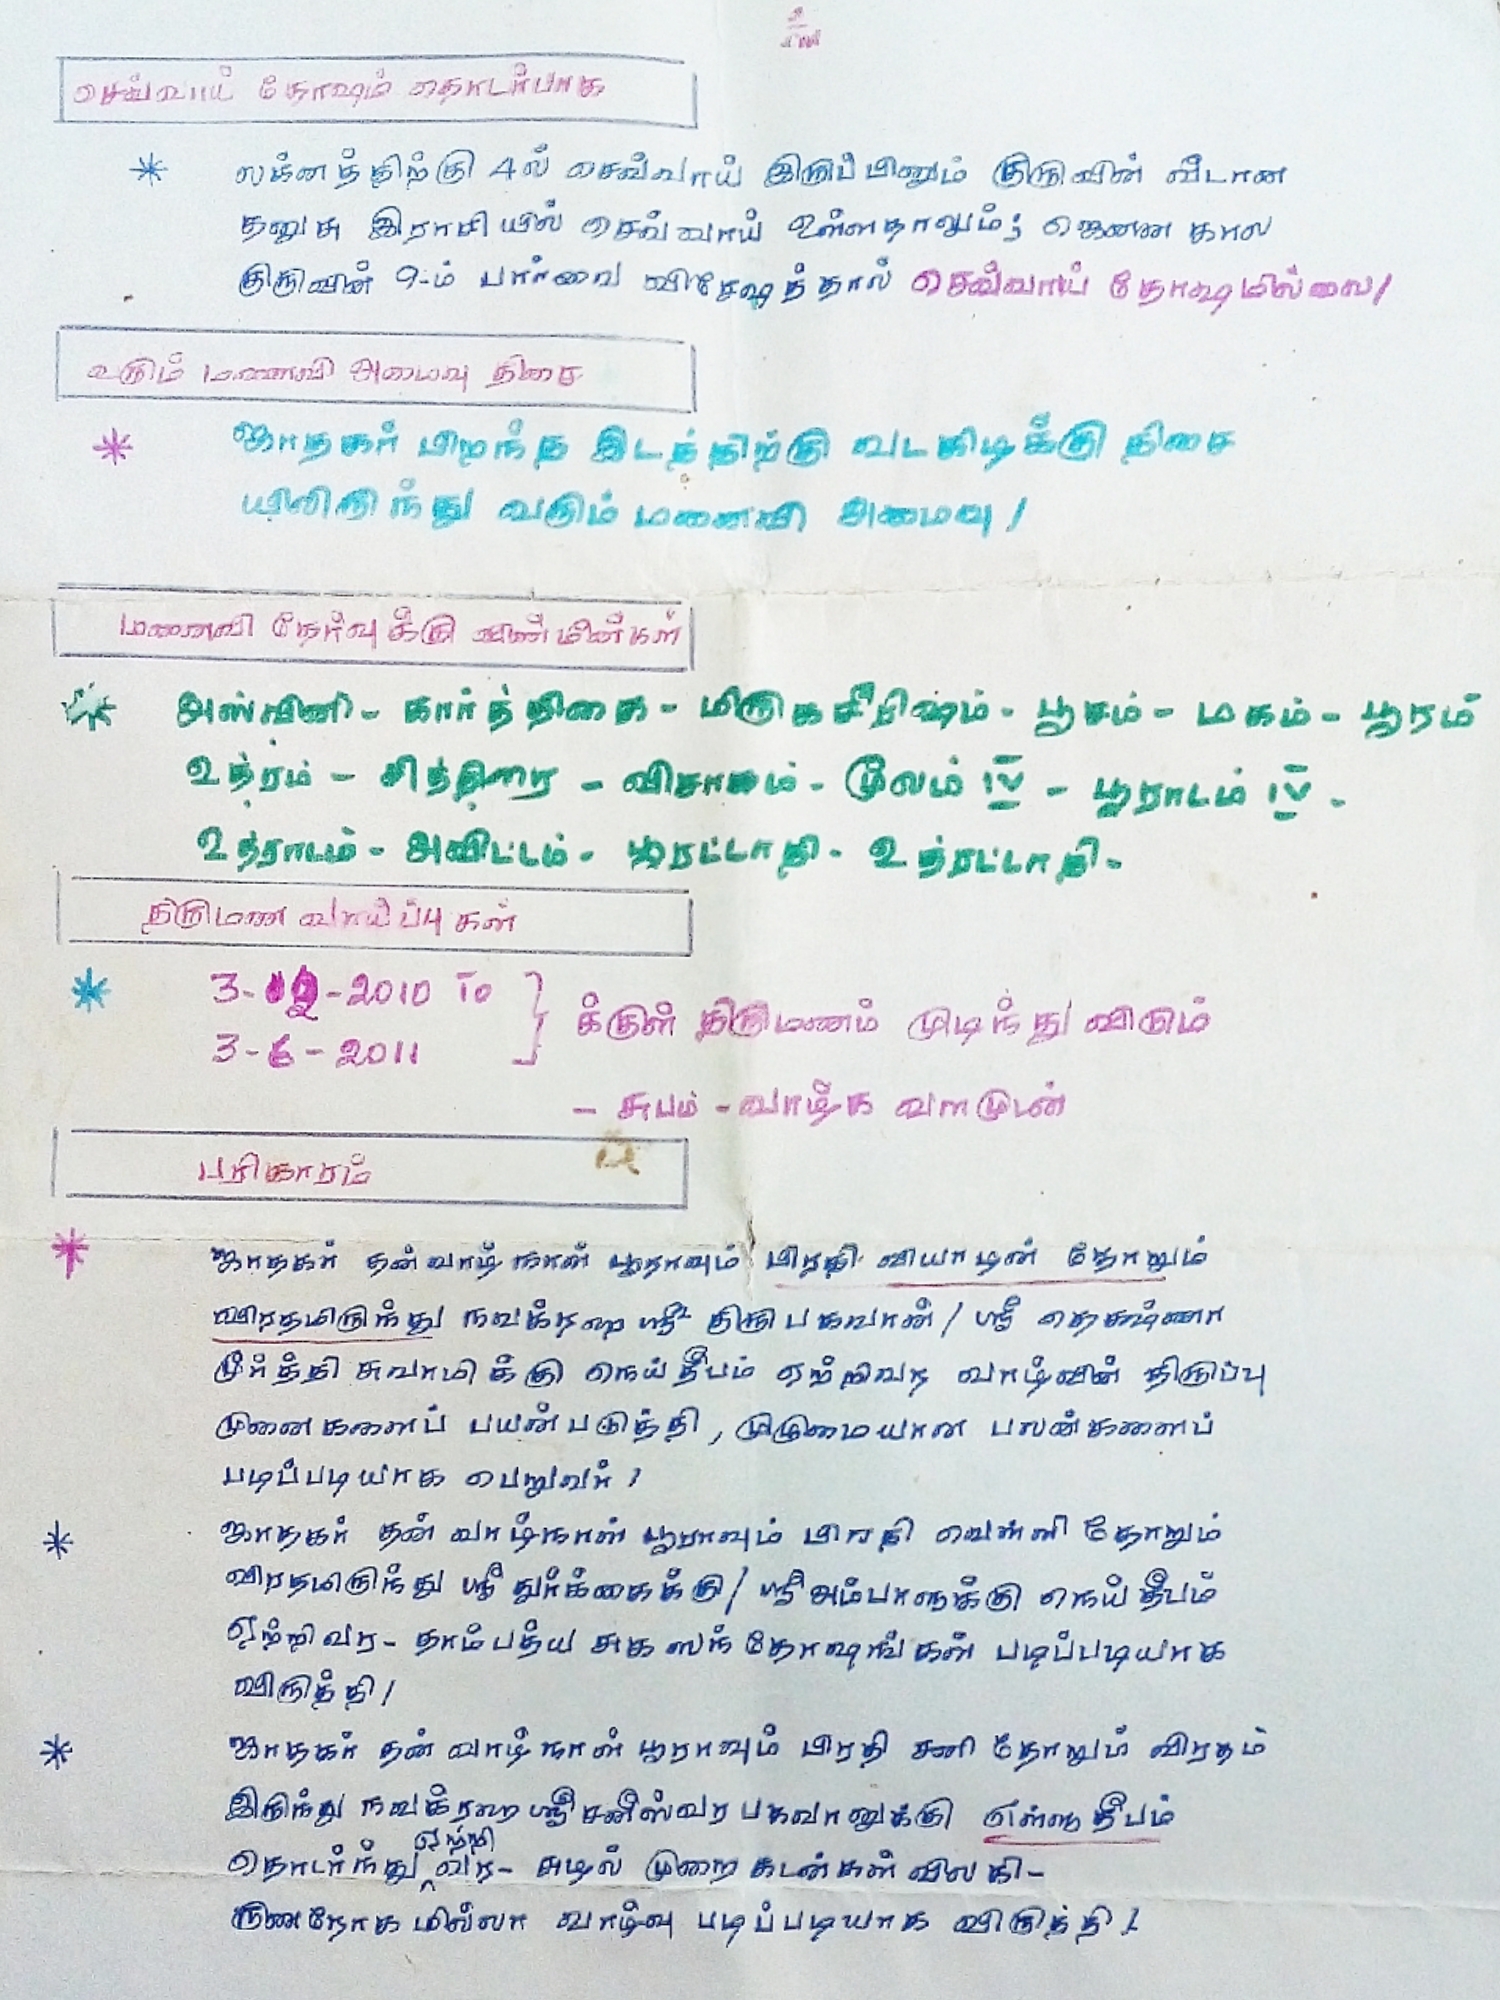 உ
செவ்வாய் தோஷம் தொடர்பாக
* லக்னத்திற்கு 4ல் செவ்வாய் இருப்பினும் குருவின் வீடான
தனுசு இராசியில் செவ்வாய் உள்ளதாலும்; ஜெனன கால
குருவின் 9-ம் பார்வை விசேஷத்தால் செவ்வாய் தோஷமில்லை/
வரும் மணைவி அமைவு திசை
* ஜாதகர் பிறந்த இடத்திற்கு வடகிடிக்கு திசை
யிலிருந்து வரும் மணைவி அமைவு /
மணைவி தேர்வுக்கு விண்மீன்கள்
* அஸ்வினி - கார்த்திகை - மிருகசீரிஷம் - பூசம் - மகம் - பூரம்
உத்ரம் - சித்திரை - விசாகம் - மூலம் IV - பூராடம் IV -
உத்ராடம் - அவிட்டம் - பூரட்டாதி - உத்ரட்டாதி -
திருமண வாய்ப்புகள்
* 3-12-2010 To
3-6-2011 } க்குள் திருமணம் முடிந்து விடும்
- சுபம் - வாழ்க வளமுடன்
பரிகாரம்
* ஜாதகர் தன் வாழ்நாள் பூராவும் பிரதி வியாழன் தோறும்
விரதமிருந்து நவக்ரஹ ஸ்ரீ குரு பகவான் / ஸ்ரீ தெக்ஷிணா
மூர்த்தி சுவாமிக்கு நெய்தீபம் ஏற்றிவர வாழ்வின் திருப்பு
முனைகளைப் பயன்படுத்தி, முழுமையான பலன்களைப்
படிப்படியாக பெறுவர் /
* ஜாதகர் தன் வாழ்நாள் பூராவும் பிரதி வெள்ளி தோறும்
விரதமிருந்து ஸ்ரீ துர்க்கைக்கு / ஸ்ரீ அம்பாளுக்கு நெய் தீபம்
ஏற்றிவர - தாம்பத்ய சுக ஸந்தோஷங்கள் படிப்படியாக
விருத்தி /
* ஜாதகர் தன் வாழ்நாள் பூராவும் பிரதி சனி தோறும் விரதம்
இருந்து நவக்ரஹ ஸ்ரீ சனீஸ்வர பகவானுக்கு எள்ளு தீபம்
தொடர்ந்து ஏற்றி வர - சுடில் முறை கடன்கள் விலகி -
ருணரோக மில்லா வாழ்வு படிப்படியாக விருத்தி /